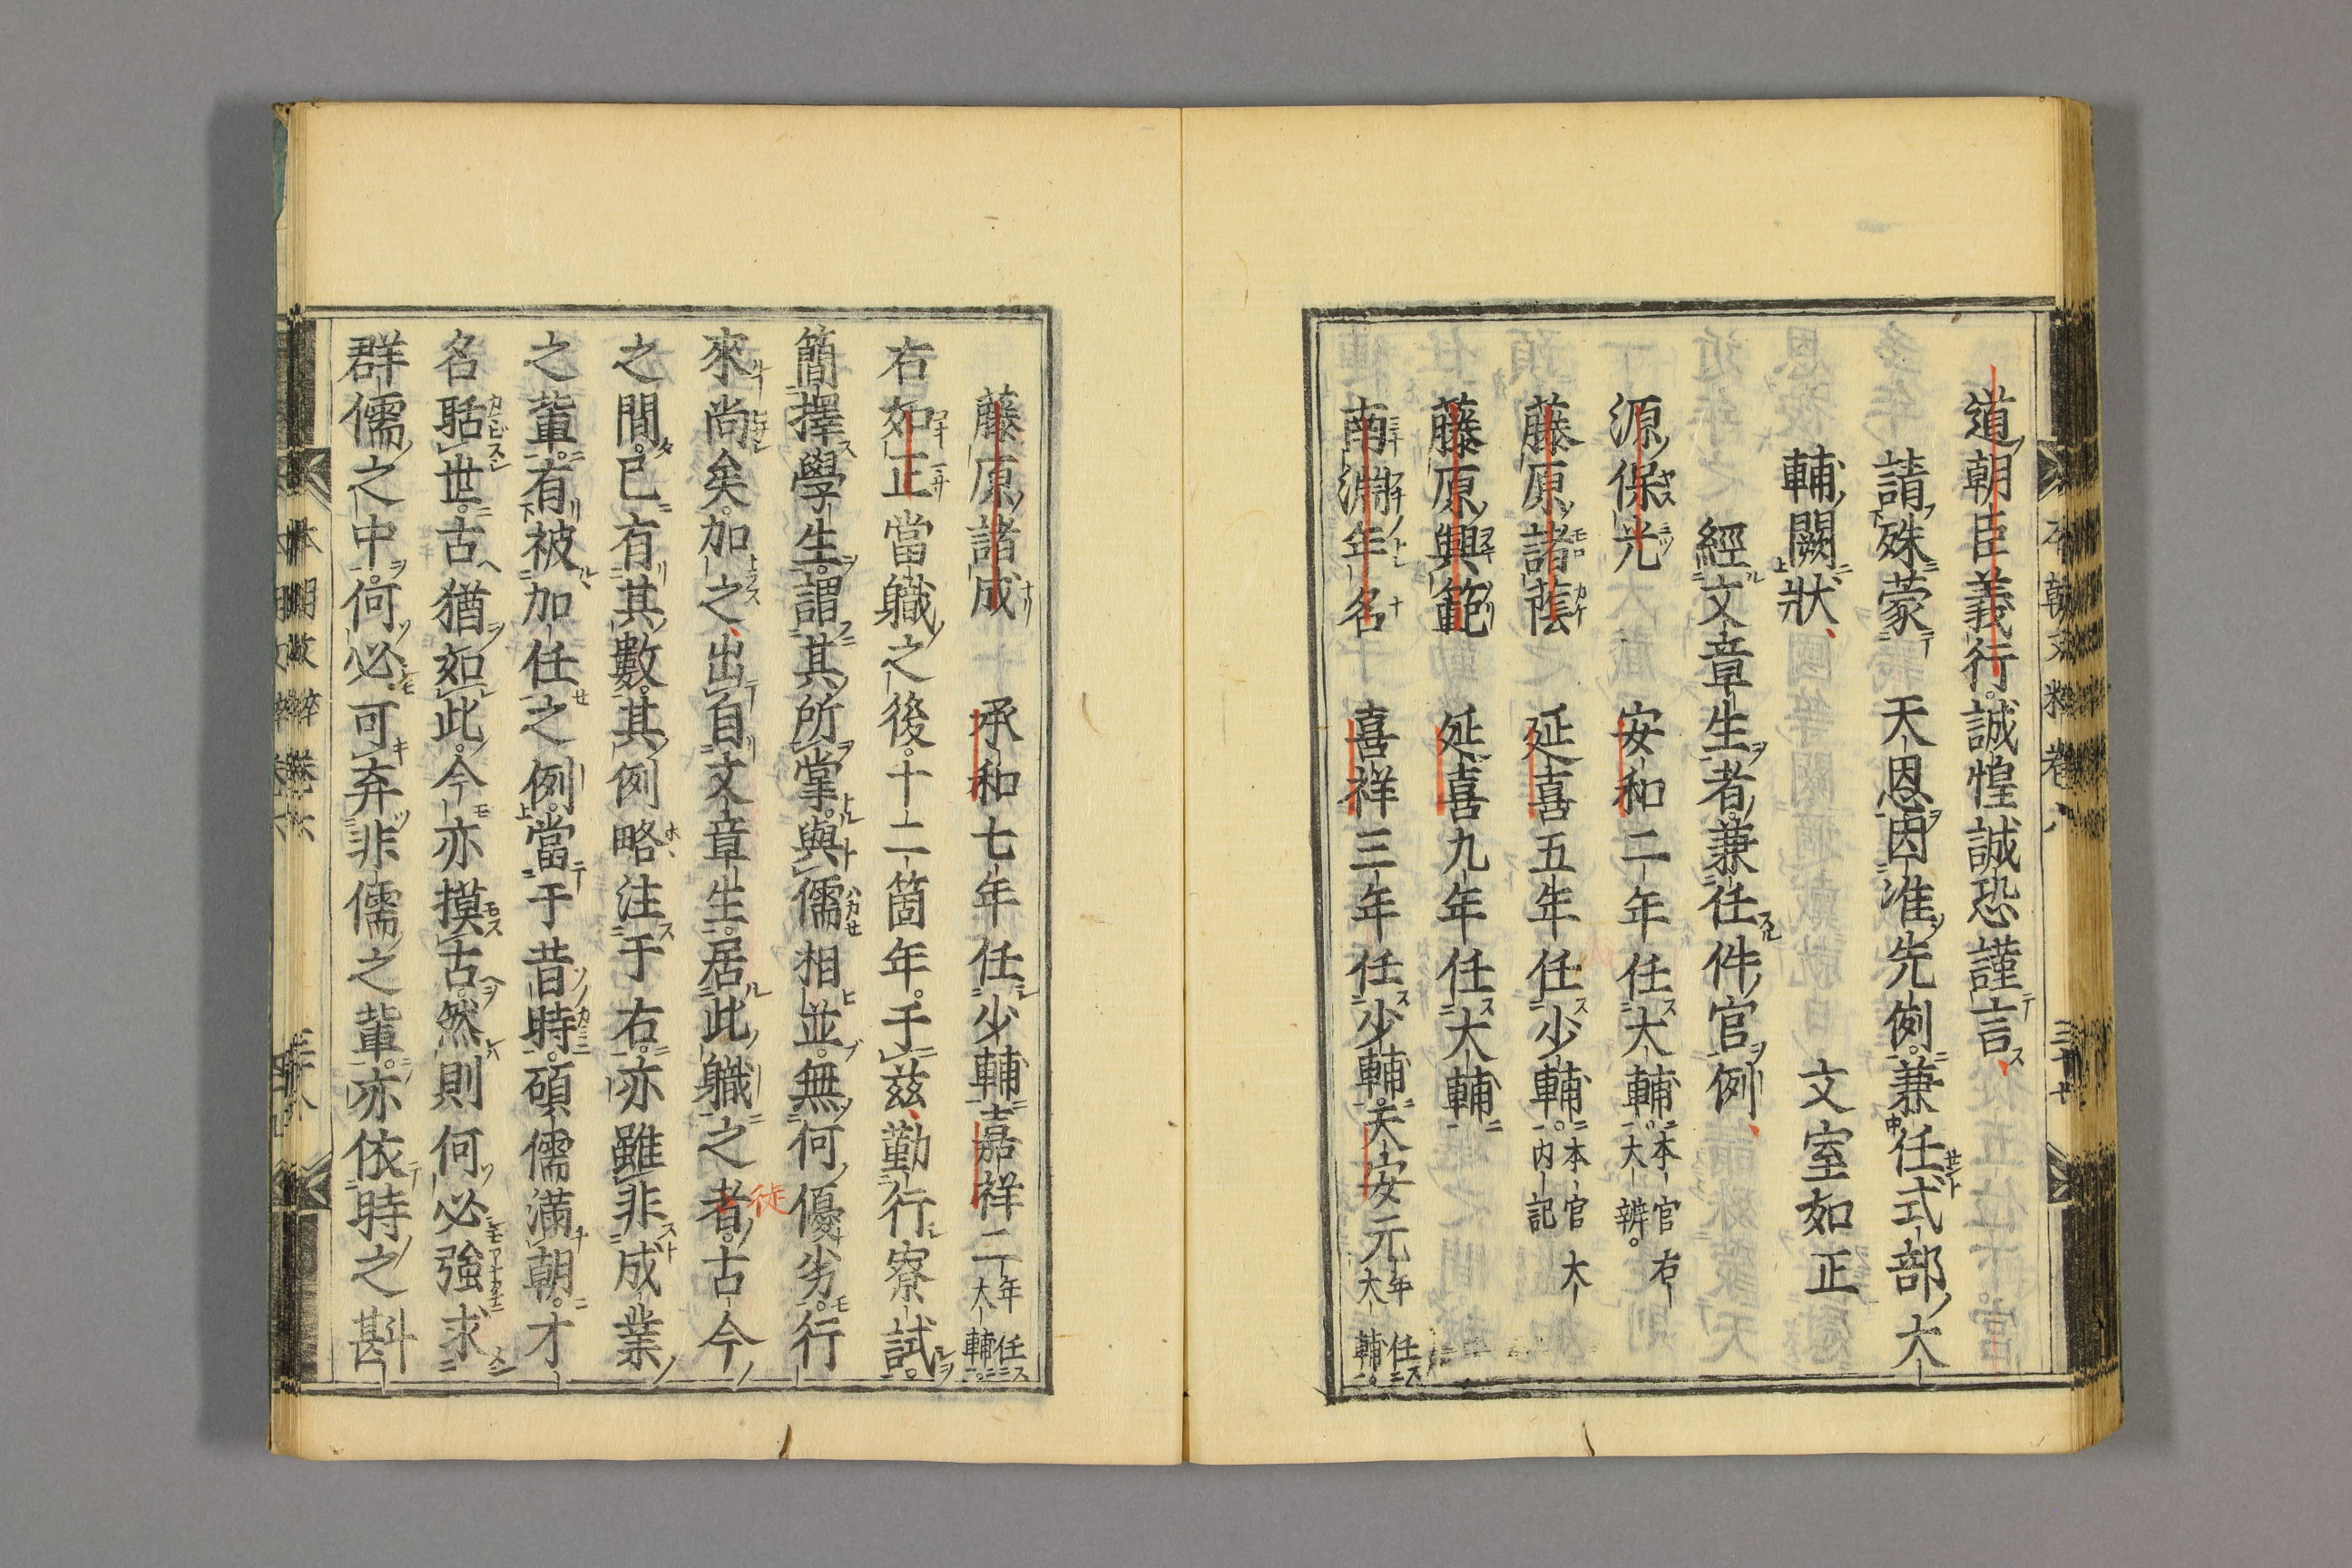 道朝臣義行。誠惶誠恐謹言
請殊蒙　天恩因准先例。兼任式部大
輔闕狀
文室如正
經文章生者。兼任件官例
源保光　安和二年任大輔。本官右大辨。
藤原諸蔭　延喜五年任少輔。本官大内記
藤原興範　延喜九年任大輔
南淵年名　嘉祥三年任少輔。天安元年任大輔。
藤原諸成　承和七年任少輔。嘉祥二年任大輔。
右如正當職之後。十二箇年。于茲勤行寮試。
簡擇學生。謂其所掌。與儒相並。無何優劣。行
來尚矣。加之出自文章生。居此職之者。古今
徒
之間。已有其數。其例略注于右。亦雖非成業
之輩。有被加任之例。當于昔時。碩儒滿朝。才
名聒世。古猶如此。今亦摸古。然則何必強求
群儒之中。何必可弃非儒之輩。亦依時之斟